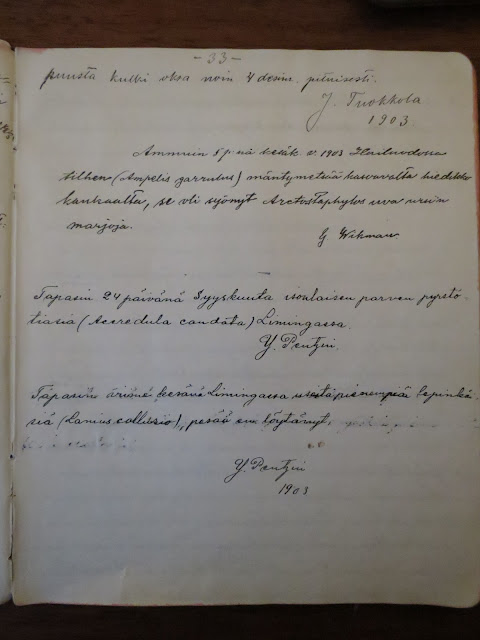 - 33 -
puusta kulki oksa noin 4 desim. pituisesti.
J. Tuokkola
1903.
Ammuin 5 p:nä kesäk. v. 1903 Hailuodossa
tilhen (Ampelis garrulus) mäntymetsää kasvavalta
kankaalta, se oli syönyt Arctostaphylos uva ursin
marjoja.
G Wikman
Tapasin 24 päivänä Syyskuuta isonlaisen parven pyrstö-
tiasia (Acredula caudata) Limingassa.
Y. Pentzin.
Tapasin viime kesänä Limingassa useita pienempiä lepinkä-
siä (Lanius collurio), pesää en löytänyt.
Y. Pentzin
1903